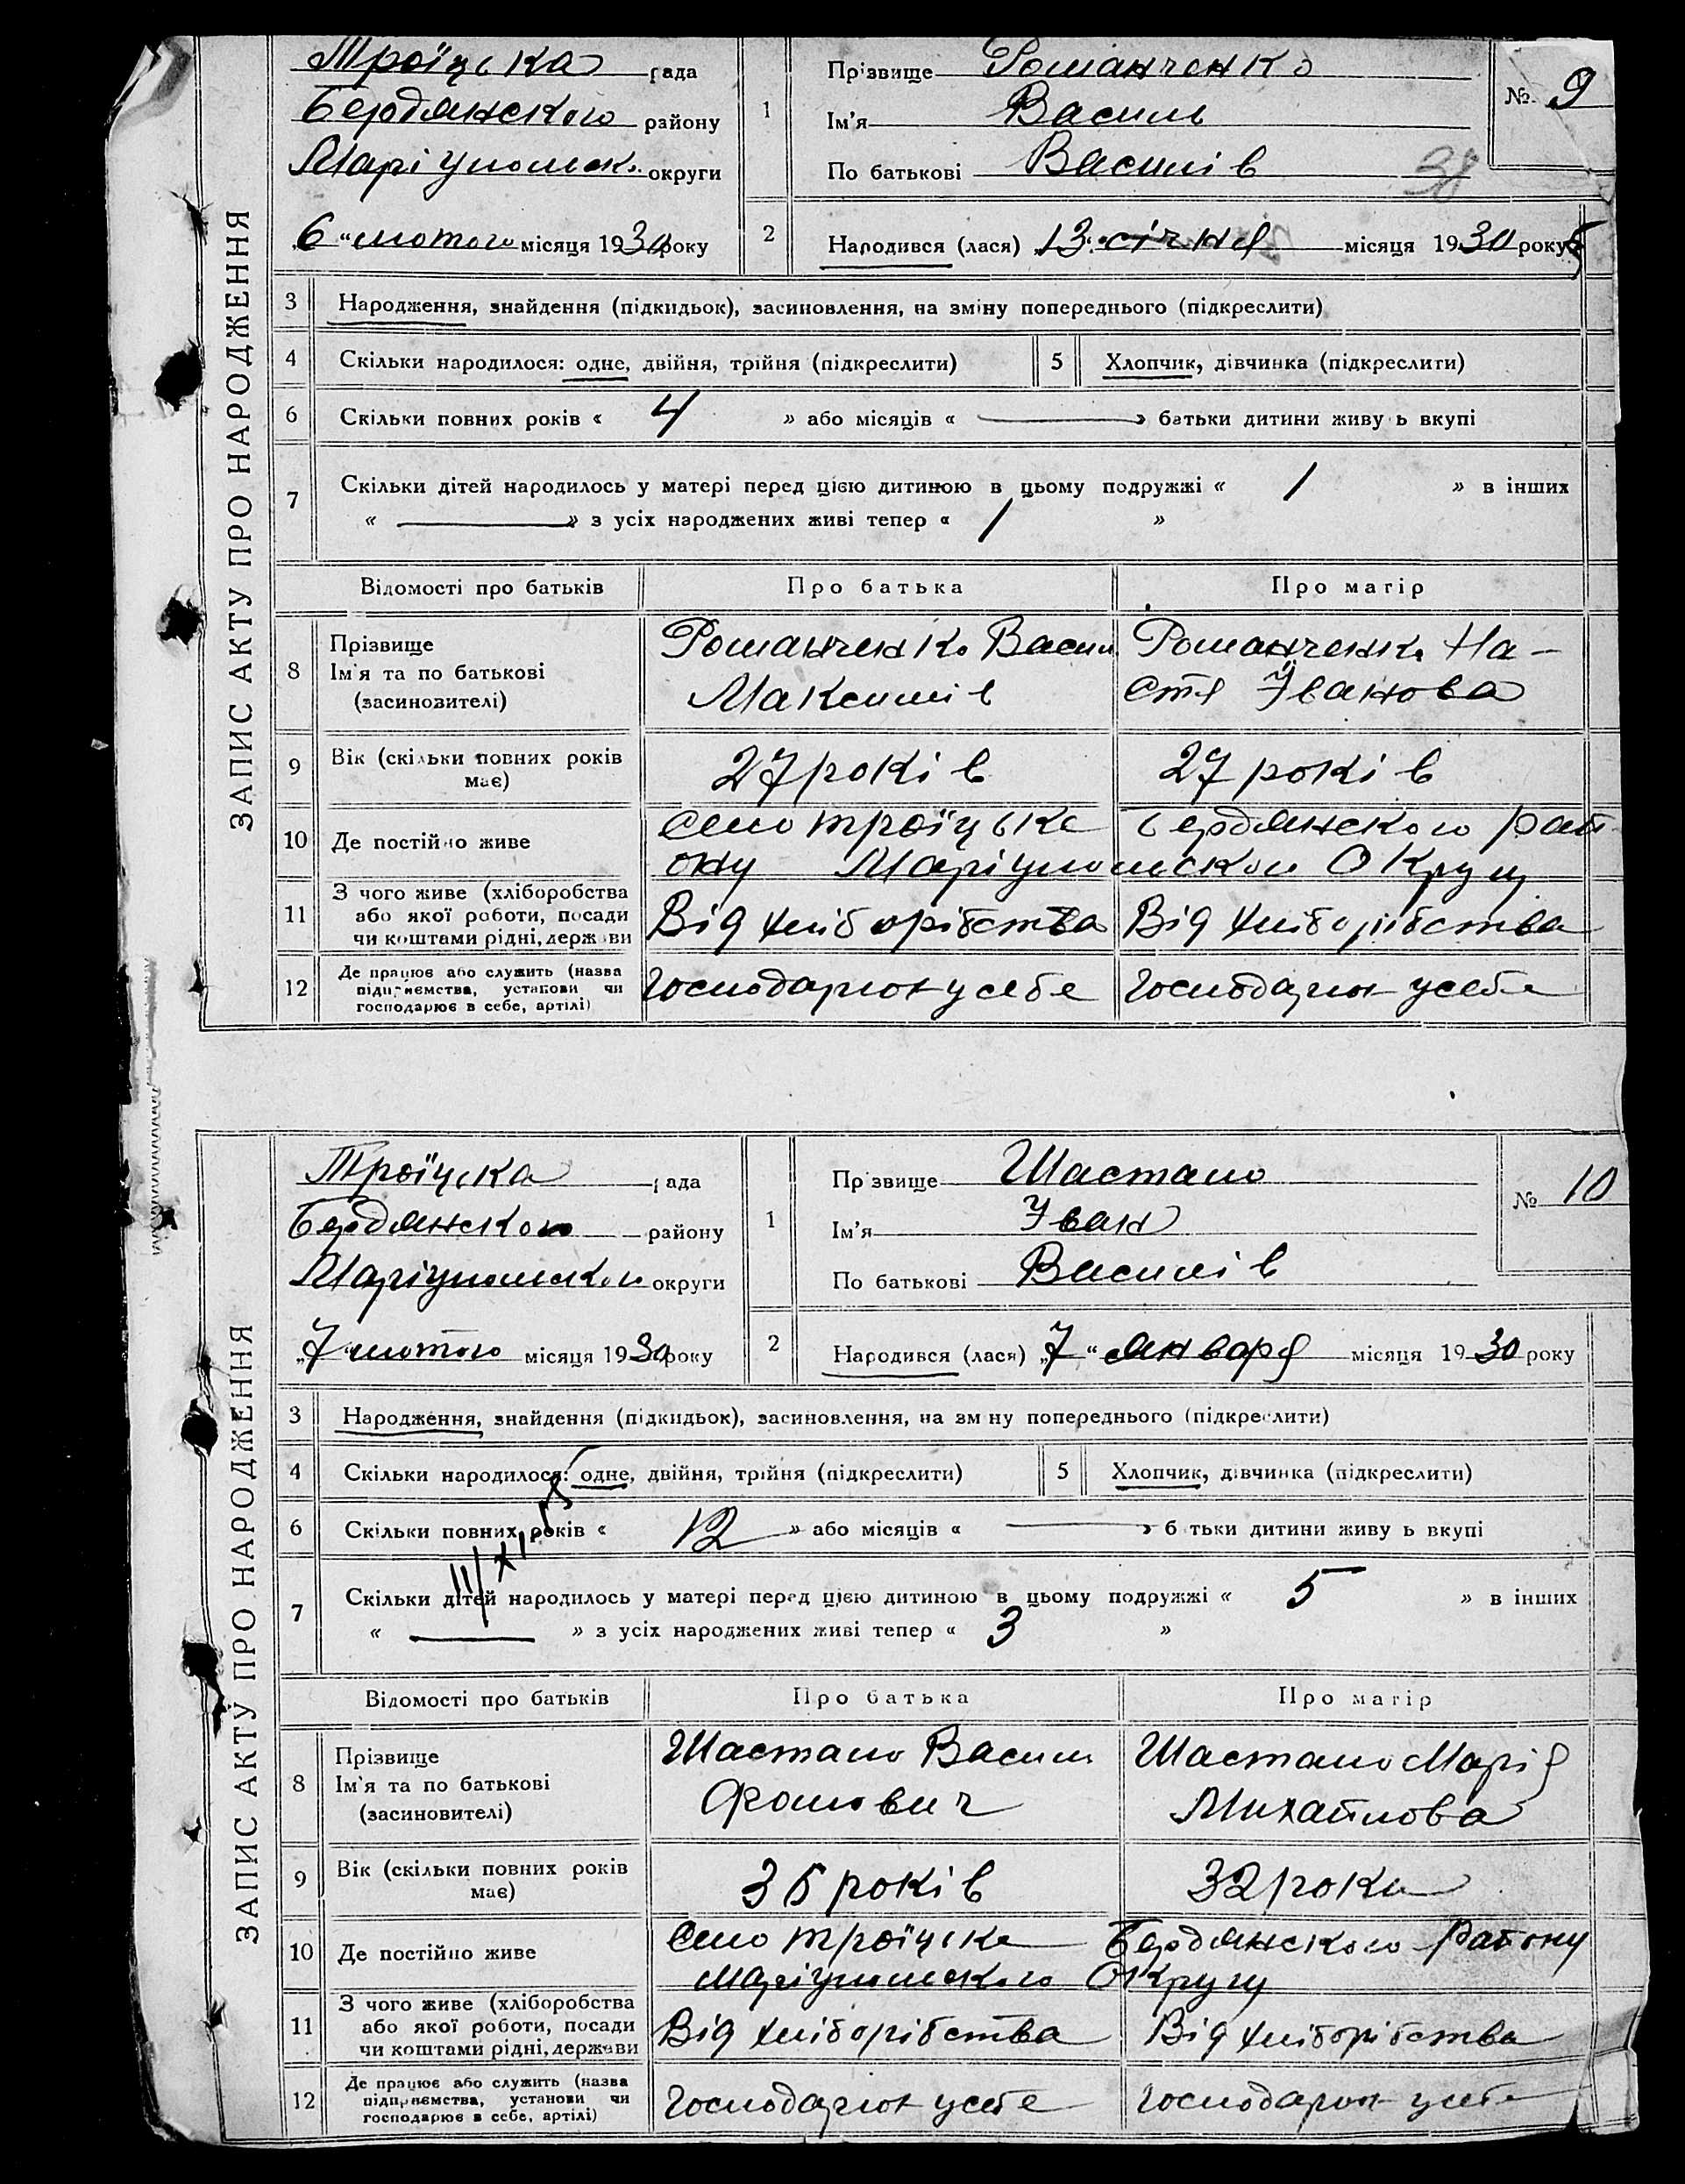 ЗАПИС АКТУ ПРО НАРОДЖЕННЯ
Троїцька рада
Бердянского району
Маріупольск. округи
„6“ лютого місяця 1930 року
1 Прізвище Романченко
Ім'я Василь
По батькові Василів
№ 9
38
2 Народився (лася) „13“ січня місяця 1930 року
3 Народження, знайдення (підкидьок), засиновлення, на зміну попереднього (підкреслити)
4 Скільки народилося: одне, двійня, трійня (підкреслити) 5 Хлопчик, дівчинка (підкреслити)
6 Скільки повних років « 4 » або місяців « — » батьки дитини живуть вкупі
7 Скільки дітей народилось у матері перед цією дитиною в цьому подружжі « 1 » в інших
« — » з усіх народжених живі тепер « 1 »
Відомості про батьків Про батька Про матір
8 Прізвище
Ім'я та по батькові
(засиновителі)
Романченко Васил
Максимів
Романченко На-
стя Іванова
9 Вік (скільки повних років
має)
27 років 27 років
10 Де постійно живе
Село Троїцьке Бердянского рай
ону Маріупольского Округу
11 З чого живе (хліборобства
або якої роботи, посади
чи коштами рідні, держави
Від хліборібства Від хліборібства
12 Де працює або служить (назва
підприємства, установи чи
господарює в себе, артілі)
Господарют у себе Господарют у себе
ЗАПИС АКТУ ПРО НАРОДЖЕННЯ
Троїцка рада
Бердянского району
Маріупольского округи
„7“ лютого місяця 1930 року
1 Прізвище Шастало
Ім'я Іван
По батькові Василів
№ 10
2 Народився (лася) „7“ января місяця 1930 року
3 Народження, знайдення (підкидьок), засиновлення, на зміну попереднього (підкреслити)
4 Скільки народилося: одне, двійня, трійня (підкреслити) 5 Хлопчик, дівчинка (підкреслити)
6 Скільки повних років « 12 » або місяців « — » батьки дитини живуть вкупі
7 Скільки дітей народилось у матері перед цією дитиною в цьому подружжі « 5 » в інших
« — » з усіх народжених живі тепер « 3 »
Відомості про батьків Про батька Про матір
8 Прізвище
Ім'я та по батькові
(засиновителі)
Шастало Васил
Фомович
Шастало Марія
Михайлова
9 Вік (скільки повних років
має)
35 років 32 роки
10 Де постійно живе
Село Троїцке Бердянского Району
Маріупольского Округу
11 З чого живе (хліборобства
або якої роботи, посади
чи коштами рідні, держави
Від хліборібства Від хліборібства
12 Де працює або служить (назва
підприємства, установи чи
господарює в себе, артілі)
Господарют у себе Господарют у себе